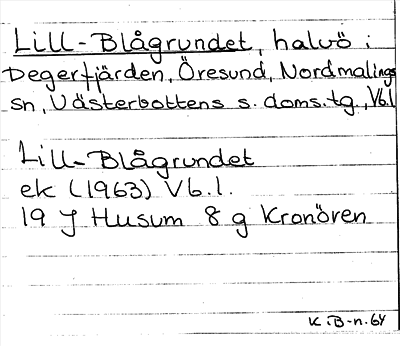 Lill-Blågrundet, halvö i
Degerfjärden, Öresund, Nordmalings
sn, Västerbottens s. doms.tg., Vb.l
Lill-Blågrundet
ek (1963) Vb.l.
19 J Husum 8 g Kronören
K.B-n.64